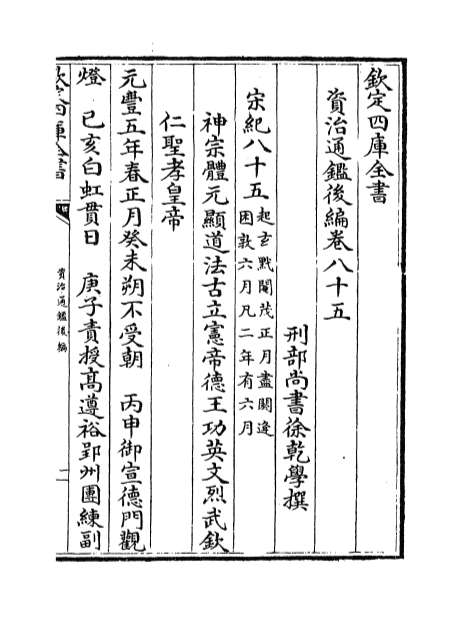 欽定四庫全書
資治通鑑後編卷八十五
刑部尚書徐乾學撰
宋紀八十五起玄黓閹茂正月盡閼逢
困敦六月凡二年有六月
神宗體元顯道法古立憲帝德王功英文烈武欽
仁聖孝皇帝
元豐五年春正月癸未朔不受朝 丙申御宣德門觀
燈 己亥白虹貫日 庚子責授髙遵裕郢州團練副
欽定四庫全書
資治通鑑後編
一